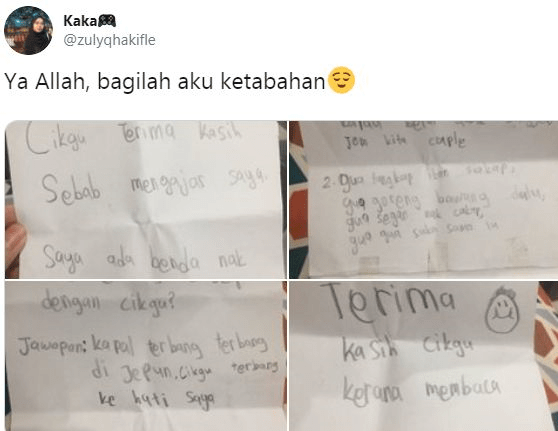 Kaka🎮
@zulyqhakifle
Ya Allah, bagilah aku ketabahan😌
Cikgu Terima kasih
Sebab mengajar saya.
Saya ada benda nak
Jom kita couple
2. Gua tangkap ikan siakap,
gua goreng bawang dulu,
gua segan nak cakap,
gua gua suka sama lu
dengan cikgu?
Jawapan: kapal terbang terbang
di Jepun. Cikgu terbang
ke hati saya
Terima
kasih cikgu
kerana membaca